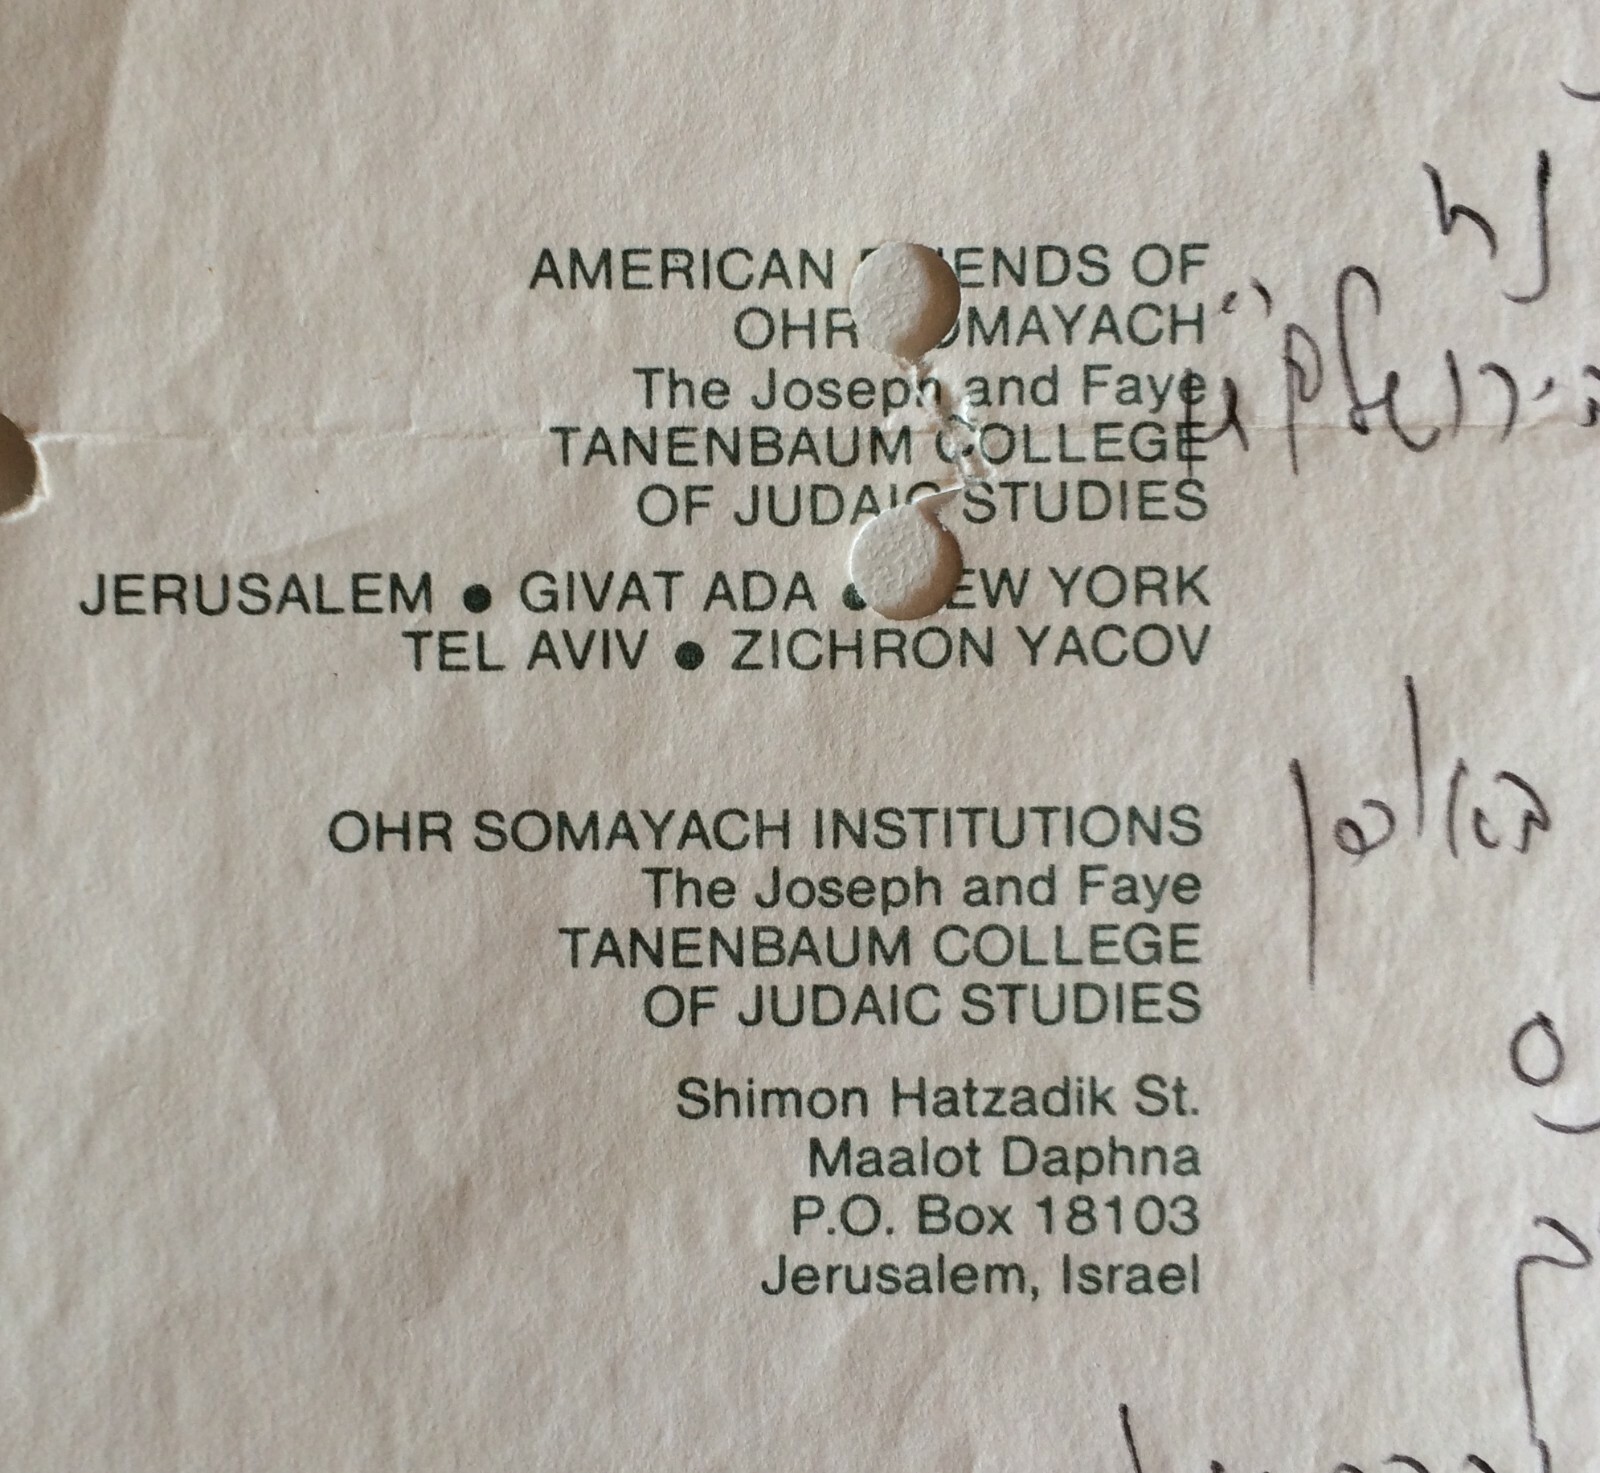 AMERICAN FRIENDS OF
OHR SOMAYACH
The Joseph and Faye
TANENBAUM COLLEGE
OF JUDAIC STUDIES
JERUSALEM ● GIVAT ADA ● NEW YORK
TEL AVIV ● ZICHRON YACOV
OHR SOMAYACH INSTITUTIONS
The Joseph and Faye
TANENBAUM COLLEGE
OF JUDAIC STUDIES
Shimon Hatzadik St.
Maalot Daphna
P.O. Box 18103
Jerusalem, Israel